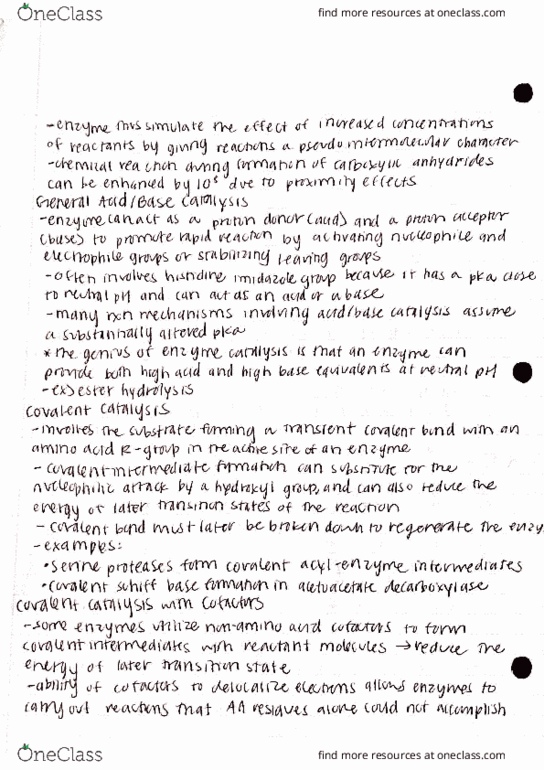 OneClass
find more resources at oneclass.com
-enzyme thus simulate the effect of increased concentrations
of reactants by giving reactions a pseudo intermolecular character
-chemical reaction during formation of carboxylic anhydrides
can be enhanced by 10⁶ due to proximity effects
General Acid/Base Catalysis
-enzyme can act as a proton donor (acid) and a proton acceptor
(base) to promote rapid reaction by activating nucleophile and
electrophile groups or stabilizing leaving groups
-often involves histidine imidazole group because it has a pKa close
to neutral pH and can act as an acid or a base
-many rxn mechanisms involving acid/base catalysis assume
a substantially altered pKa
*the genius of enzyme catalysis is that an enzyme can
provide both high acid and high base equivalents at neutral pH
-ex) ester hydrolysis
Covalent Catalysis
-involves the substrate forming a transient covalent bond with an
amino acid R-group in the active site of an enzyme
-covalent intermediate formation can substitute for the
nucleophilic attack by a hydroxyl group, and can also reduce the
energy of later transition states of the reaction
-covalent bond must later be broken down to regenerate the enzy
-examples:
•serine proteases form covalent acyl-enzyme intermediates
•covalent schiff base formation in acetoacetate decarboxylase
Covalent catalysis with Cofactors
-some enzymes utilize non-amino acid cofactors to form
covalent intermediates with reactant molecules → reduce the
energy of later transition state
-ability of cofactors to delocalize electrons allows enzymes to
carry out reactions that AA residues alone could not accomplish
OneClass
find more resources at oneclass.com